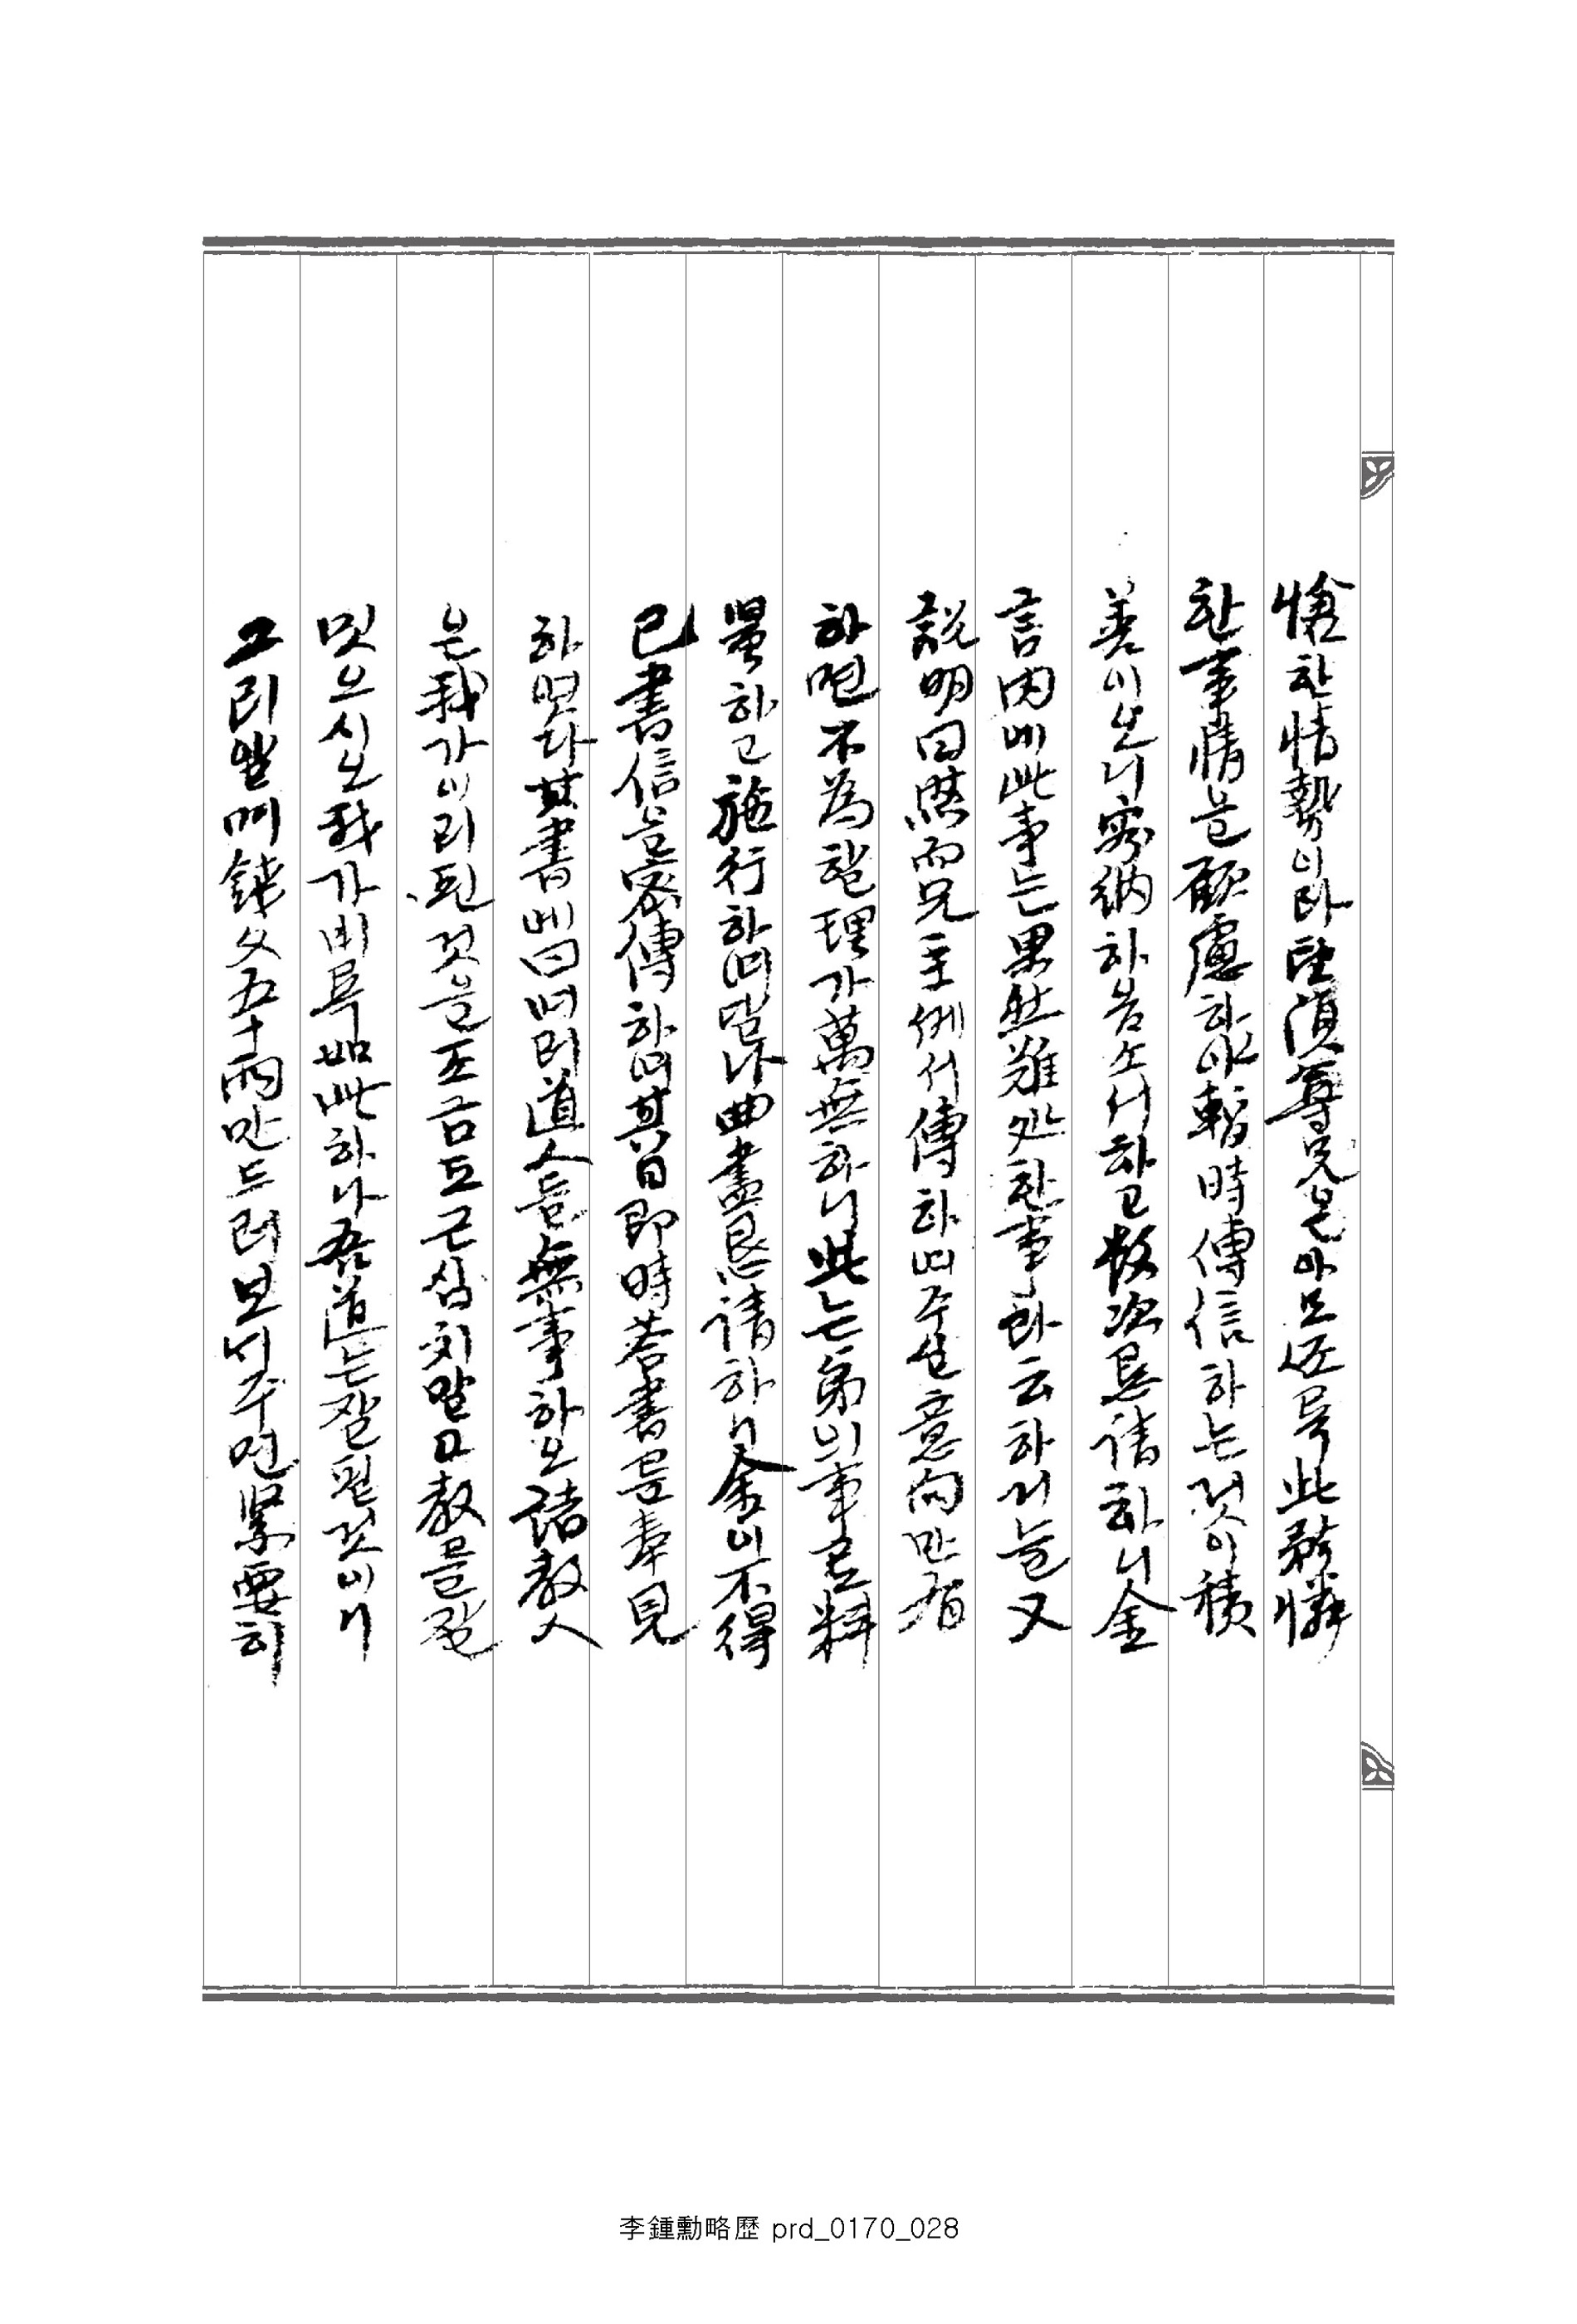 한 情勢이라 但須尊兄은 아모죠록 此矜憐
한 事情을 顧慮하야 暫時傳信하는 것이 積
善이오니 容納하옵소서 하고 數次懇請하니 金
言內에 此事는 果然難処한 事라 云하거늘 又
說明曰 然而兄主게서 傳하여 주실 意向만 有
하면 不爲할 理가 萬無하니 此는 弟의 事로 料
量하고 施行하여 달나 曲盡懇請하니 金이 不得
已 書信을 密傳하여 其日卽時 答書를 奉見
하엿다 其書에 曰 여러 道人들 無事하오 諸敎人
은 我가 이리 된 것을 조금도 근심치 말고 敎를 잘
밋으시오 我가 비록 如此하나 吾道는 잘 될 것이니
그리 알며 錢文五十兩만 드려보내주면 緊要히